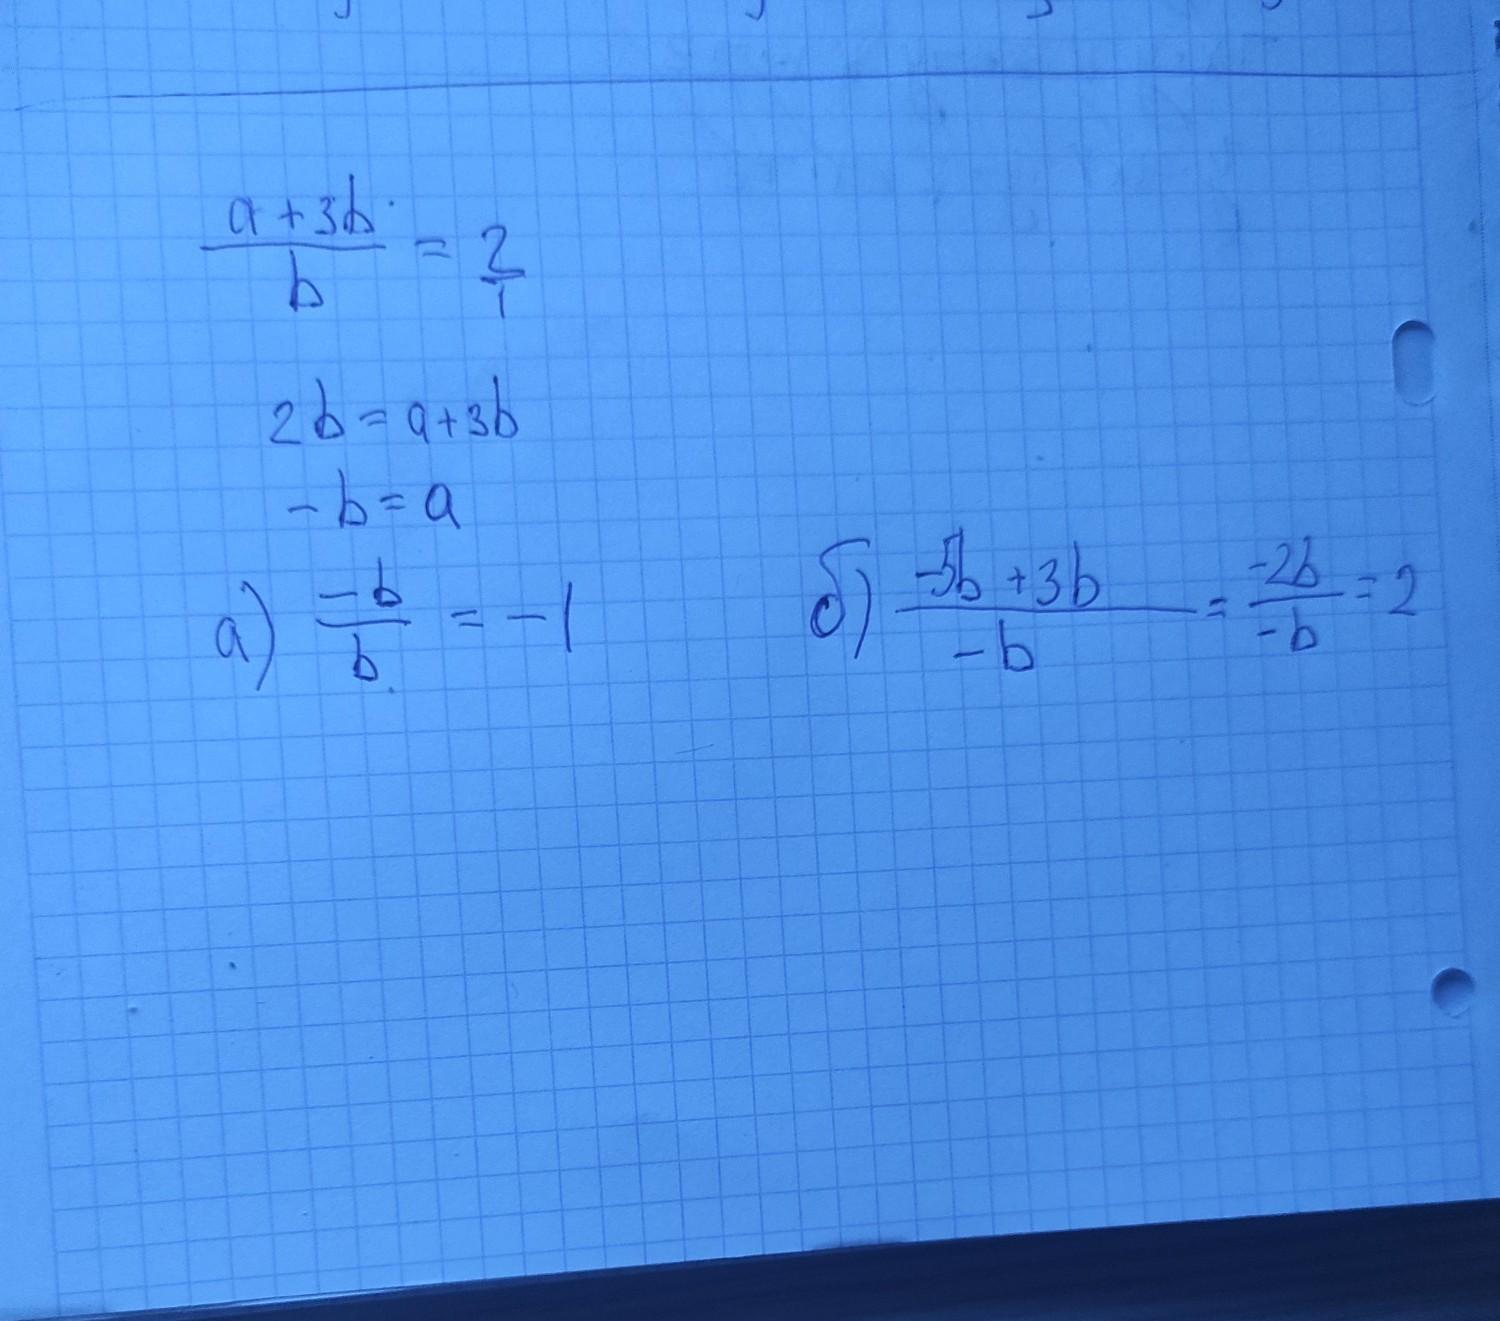 a+3b/b = 2/1
2b=a+3b
-b=a
а) -b/b = -1
б) -5b+3b/-b = -2b/-b = 2